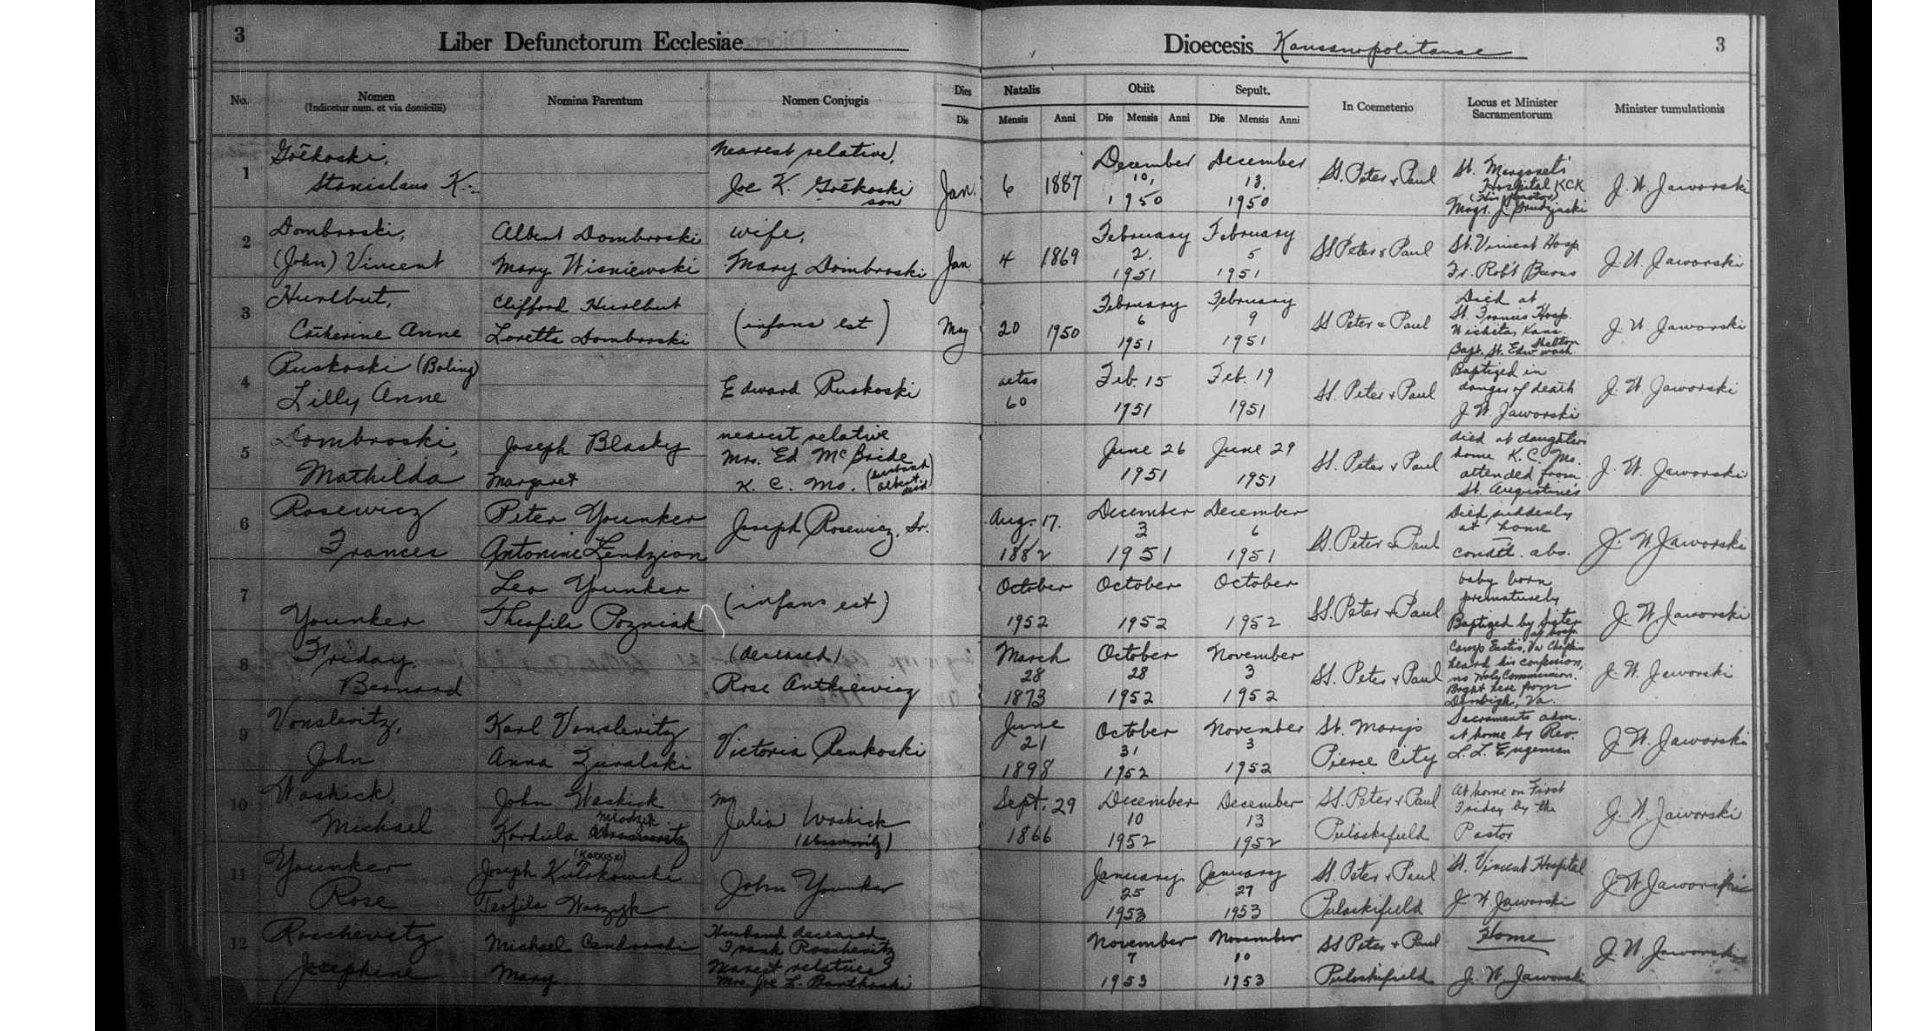 3
Liber Defunctorum Ecclesiae
Dioecesis Kansanopolitanae
3
No.
Nomen
(Indicetur num. et via domicilii)
Nomina Parentum
Nomen Conjugis
Dies Natalis
Die Mensis Anni
Obiit
Die Mensis Anni
Sepult.
Die Mensis Anni
In Coemeterio
Locus et Minister
Sacramentorum
Minister tumulationis
1
Stanislaus K.
nearest relative,
Joe K.
son
Jan. 6 1887
December
10,
1950
December
13,
1950
SS. Peter & Paul
St. Margaret's
Hospital KCK
Msgr. J.
J. W. Jaworski
2
Dombroski,
(John) Vincent
Albert Dombroski
Mary Wisniewski
wife,
Mary Dombroski
Jan 4 1869
February
2.
1951
February
5
1951
SS Peter & Paul
St. Vincent Hosp
Fr. Rob't Burns
J. W. Jaworski
3
Hurlbut,
Catherine Anne
Clifford Hurlbut
Loretta Dombroski
(infans est)
May 20 1950
February
6
1951
February
9
1951
SS Peter & Paul
Died at
St. Francis Hosp.
Wichita, Kans.
Bapt. St. Edw.
J. W. Jaworski
4
Ruskoski (Boling)
Lilly Anne
Edward Ruskoski
aetas
60
Feb. 15
1951
Feb. 19
1951
SS. Peter & Paul
Baptized in
danger of death
J. W. Jaworski
J. W. Jaworski
5
Dombroski,
Mathilda
Joseph Blasky
Margaret
nearest relative
Mrs. Ed McBride
K. C. Mo. (husband
Albert
died)
June 26
1951
June 29
1951
SS. Peter & Paul
died at daughters
home K. C. Mo.
attended from
St. Augustine's
J. W. Jaworski
6
Rosewicz
Frances
Peter Younker
Antonine Lendzion
Joseph Rosewicz, Sr.
Aug. 17.
1882
December
3
1951
December
6
1951
SS. Peter & Paul
Died suddenly
at home
condit. abs.
J. W. Jaworski
7
Younker
Leo Younker
Theofila Pozniak
(infans est)
October
1952
October
1952
October
1952
SS. Peter & Paul
baby born
prematurely
Baptized by sister
at hosp.
J. W. Jaworski
8
Friday,
Bernard
(deceased)
Rose Antkiewicz
March
28
1873
October
28
1952
November
3
1952
SS. Peter & Paul
Camp Eustis, Va
heard his confession,
no Holy Communion.
here from
Denbigh, Va.
J. W. Jaworski
9
Vonslevitz,
John
Karl Vonslevitz
Anna Zuralski
Victoria Renkoski
June
21
1898
October
31
1952
November
3
1952
St. Mary's
Pierce City
Sacraments adm.
at home by Rev.
L. L. Engeman
J. W. Jaworski
10
Waskick,
Michael
John Waskick
Kordula
Julia Waskick
Sept. 29
1866
December
10
1952
December
13
1952
SS. Peter & Paul
Pulaskifield
At home on First
Friday by the
Pastor
J. W. Jaworski
11
Younker
Rose
Joseph
Teofila
John Younker
January
25
1953
January
27
1953
SS. Peter & Paul
Pulaskifield
St. Vincent Hospital
J. W. Jaworski
J. W. Jaworski
12
Roschevitz
Josephine
Michael
Mary
Husband deceased
Frank Roschevitz
Nearest relative
Mrs. Joe L.
November
7
1953
November
10
1953
SS Peter & Paul
Pulaskifield
Home
J. W. Jaworski
J. W. Jaworski